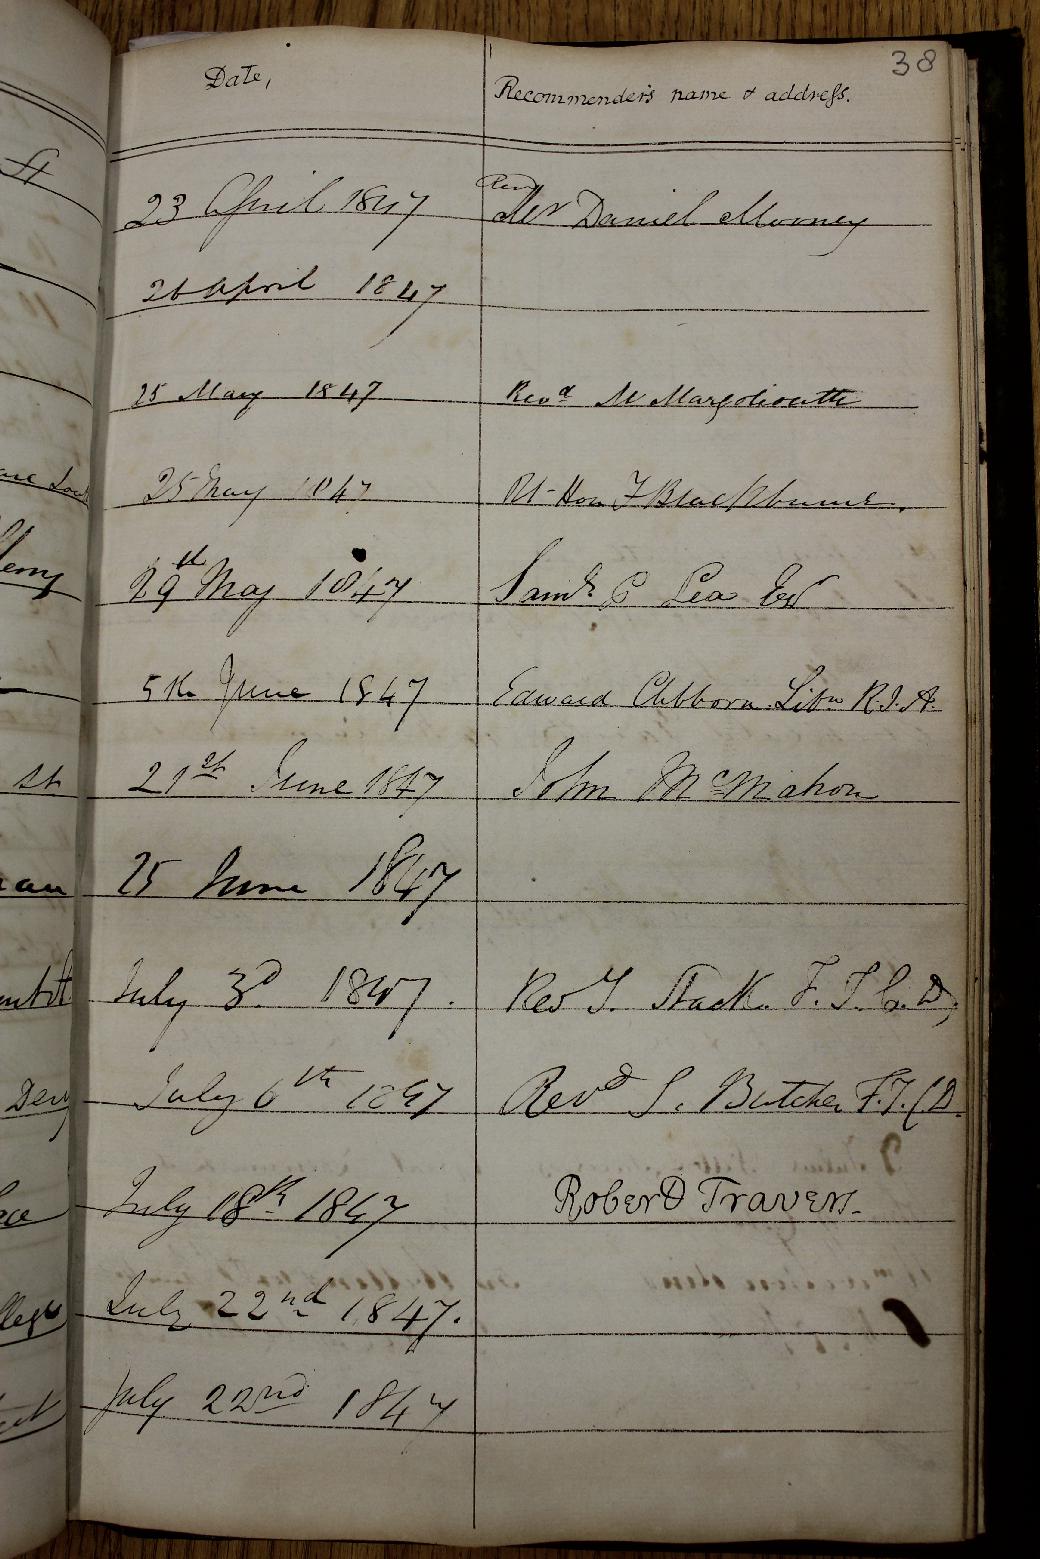 38
Date, Recommender's name & address.
23 April 1847 Revd Mr Daniel Mooney
26 April 1847
25 May 1847 Revd M Margoliouth
25 May 1847 Rt Hon F Blackburne.
29th May 1847 Saml P Lea Esq
5th June 1847 Edward Clibborn Libn R.I.A.
21st June 1847 John McMahon
25 June 1847
July 3d 1847. Rev T. Stack. F.T.C.D,
July 6th 1847 Revd S. Butcher F.T.C.D.
July 18th 1847 Robert Travers.
July 22nd 1847.
July 22nd 1847